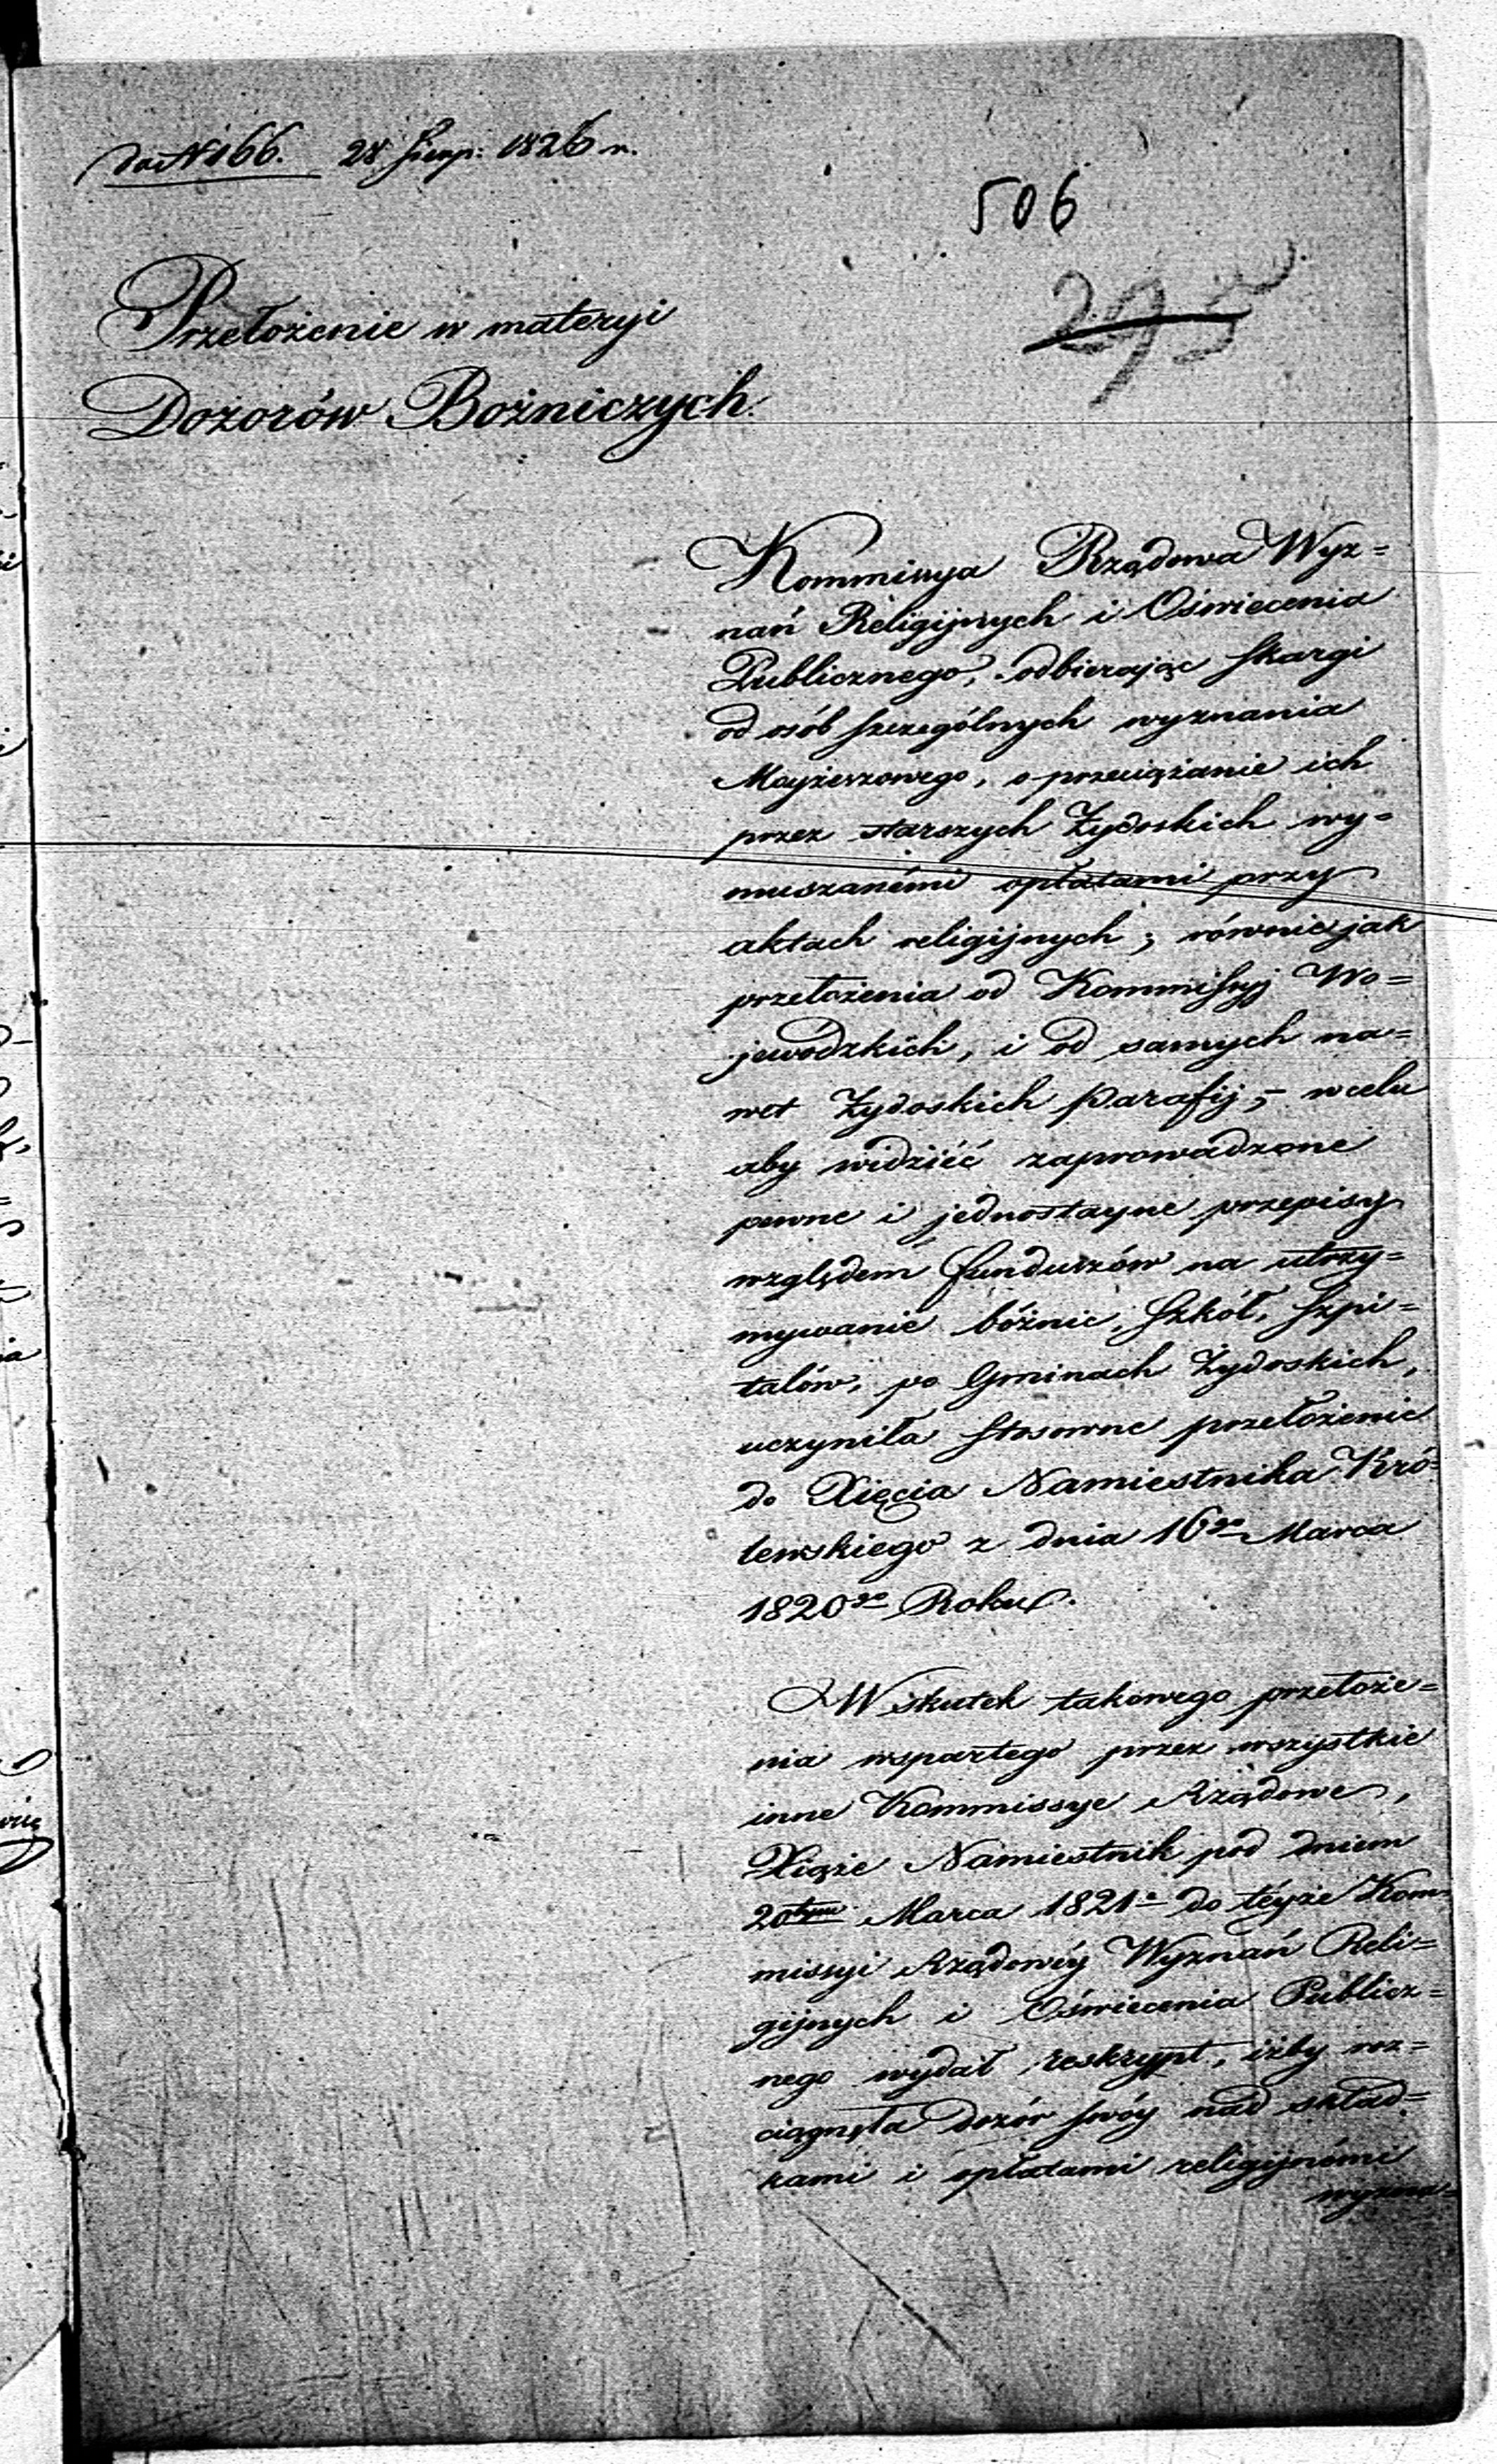 do N 166. 28 Sierp: 1826 r.
506
295
Przełożenie w materyi
Dozorów Bożniczych.
Kommissya Rządowa Wyz=
nań Religijnych i Oświecenia
Publicznego, odbierając skargi
od osób szczególnych wyznania
Mojżeszowego, o przeciążanie ich
przez starszych Żydoskich wy=
muszanémi opłatami przy
aktach religijnych; równie jak
przełożenia od Kommissyj Wo=
jewodzkich, i od samych na=
wet Żydoskich parafij, – w celu
aby widzieć zaprowadzone
pewne i jednostayne przepisy
względem funduszów na utrzy=
mywanie bóżnic, szkół, szpi=
talów, po Gminach Żydoskich,
uczyniła stosowne przełożenie
do Xięcia Namiestnika Kró=
lewskiego z dnia 16go Marca
1820go Roku.
W skutek takowego przełoże=
nia wspartego przez wszystkie
inne Kommissye Rządowe,
Xiąże Namiestnik pod dniem
20tym Marca 1821o do téyże Kom=
missyi Rządowéy Wyznań Reli=
gijnych i Oświecenia Publicz=
nego wydał reskrypt, iżby roz=
ciągnęła dozór swóy nad skład=
kami i opłatami religijnémi
wyzna=